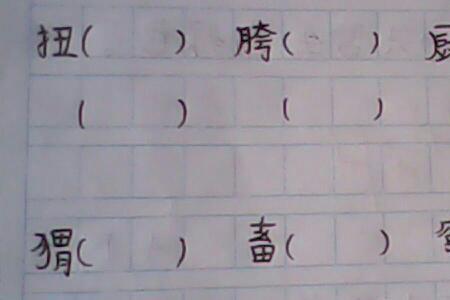 扭(  ) 胯(  )
(  ) (  )
猬(  ) 畜(  )